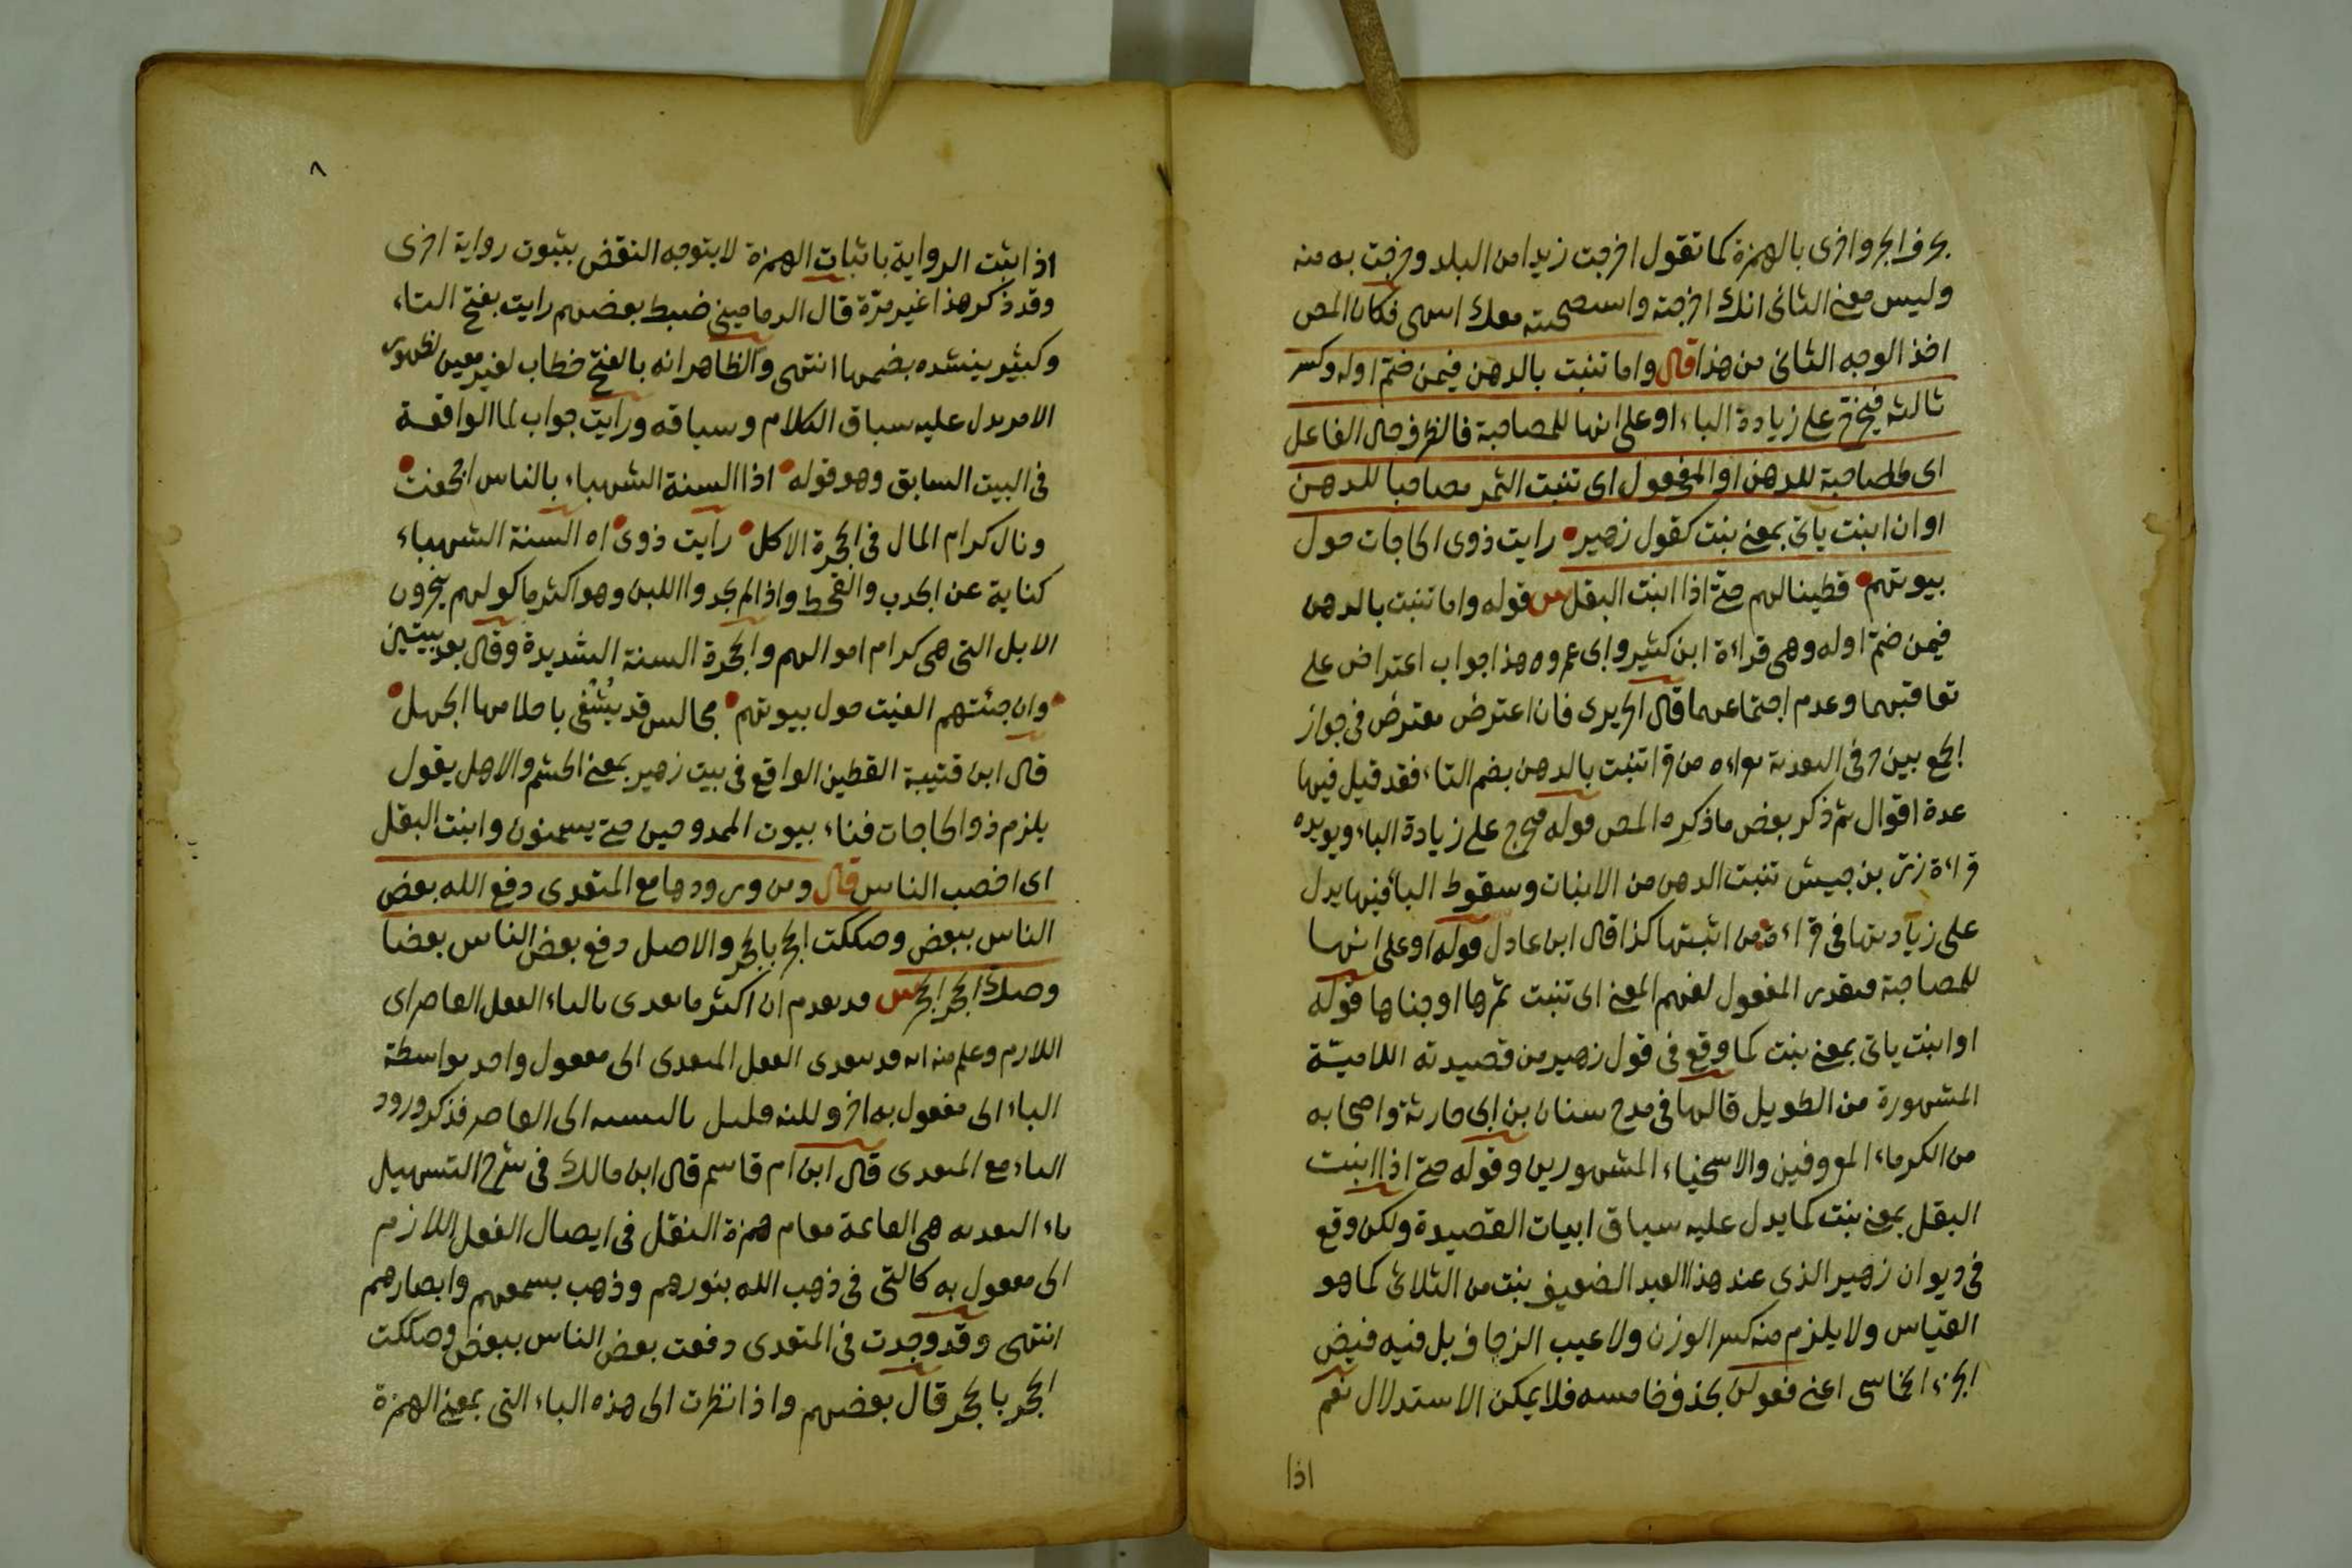 بحرف الجر واخرى بالهمزة كما تقول اخرجت زيدا من البلد وخرجت به منه
وليس معنى الثانى انك اخرجته واستصحبته معك انتهى فكان المص
اخذ الوجه الثانى من هذا قال واما تنبت بالدهن فيمن ضم اوله وكسر
ثالثه فيخرج على زيادة الباء او على انها للمصاحبة فالظرف حال الفاعل
اى مصاحبة للدهن او المفعول اى تنبت الثمر مصاحبا للدهن
او ان انبت ياتى بمعنى نبت كقول زهير رايت ذوى الحاجات حول
بيوتهم قطينا لهم حتى اذا انبت البقل ش قوله واما تنبت بالدهن
فيمن ضم اوله وهى قراءة ابن كثير وابى عمرو هذا جواب اعتراض على
تعاقبهما وعدم اجتماعهما قال الحريرى فان اعترض معترض فى جواز
الجمع بين حرفى التعدية بقراءة من قرا تنبت بالدهن بضم التاء فقد قيل فيها
عدة اقوال ثم ذكر بعض ما ذكره المص قوله فيخرج على زيادة الباء ويويده
قراءة زر بن حبيش تنبت الدهن من الانبات وسقوط الباء فيها يدل
على زيادتها فى قراءة من اثبتها كذا قال ابن عادل قوله او على انها
للمصاحبة فيقدر المفعول لفهم المعنى اى تنبت ثمرها او جناها قوله
او انبت ياتى بمعنى نبت كما وقع فى قول زهير من قصيدته اللامية
المشهورة من الطويل قالها فى مدح سنان بن ابى حارثة واصحابه
من الكرماء المعروفين والاسخياء المشهورين وقوله حتى اذا انبت
البقل بمعنى نبت كما يدل عليه سياق ابيات القصيدة ولكن وقع
فى ديوان زهير الذى عند هذا العبد الضعيف نبت من الثلاثى كما هو
القياس ولا يلزم منه كسر الوزن ولا عيب الزحاف بل فيه قبض
الجزء الخماسى اعنى فعولن بحذف خامسه فلا يمكن الاستدلال نعم
اذا
٨
اذا ثبت الرواية باثبات الهمزة لا يتوجه النقض بثبوت رواية اخرى
وقد ذكر هذا غير مرة قال الدمامينى ضبط بعضهم رايت بفتح التاء
وكثير ينشده بضمها انتهى والظاهر انه بالفتح خطاب لغير معين لظهور
الامر يدل عليه سياق الكلام وسباقه ورايت جواب لما الواقعة
فى البيت السابق وهو قوله اذا السنة الشهباء بالناس اجحفت
ونال كرام المال فى الجحرة الاكل رايت ذوى اه السنة الشهباء
كناية عن الجدب والقحط واذا لم يجدوا اللبن وهو اكثر ماكولهم ينحرون
الابل التى هى كرام اموالهم والجحرة السنة الشديدة وقال بعد بيتين
وان جئتهم الفيت حول بيوتهم مجالس قد يشفى باحلامها الجهل
قال ابن قتيبة القطين الواقع فى بيت زهير بمعنى الحشم والاهل يقول
يلزم ذوو الحاجات فناء بيوت الممدوحين حتى يسمنون وانبت البقل
اى اخصب الناس قال ومن ورودها مع المتعدى دفع الله بعض
الناس ببعض وصككت الحجر بالحجر والاصل دفع بعض الناس بعضا
وصك الحجر الحجر ش قد تقدم ان اكثر ما تعدى بالباء الفعل القاصر اى
اللازم وعلم منه انه قد يتعدى الفعل المتعدى الى مفعول واحد بواسطة
الباء الى مفعول به اخر ولكنه قليل بالنسبة الى القاصر فذكر ورود
الباء مع المتعدى قال ابن ام قاسم قال ابن مالك فى شرح التسهيل
باء التعدية هى القائمة مقام همزة النقل فى ايصال الفعل اللازم
الى مفعول به كالتى فى ذهب الله بنورهم وذهب بسمعهم وابصارهم
انتهى وقد وجدت فى المتعدى دفعت بعض الناس ببعض وصككت
الحجر بالحجر قال بعضهم واذا نظرت الى هذه الباء التى بمعنى الهمزة